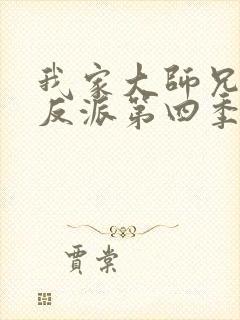 我家大師兄
反派第四季
賈棠